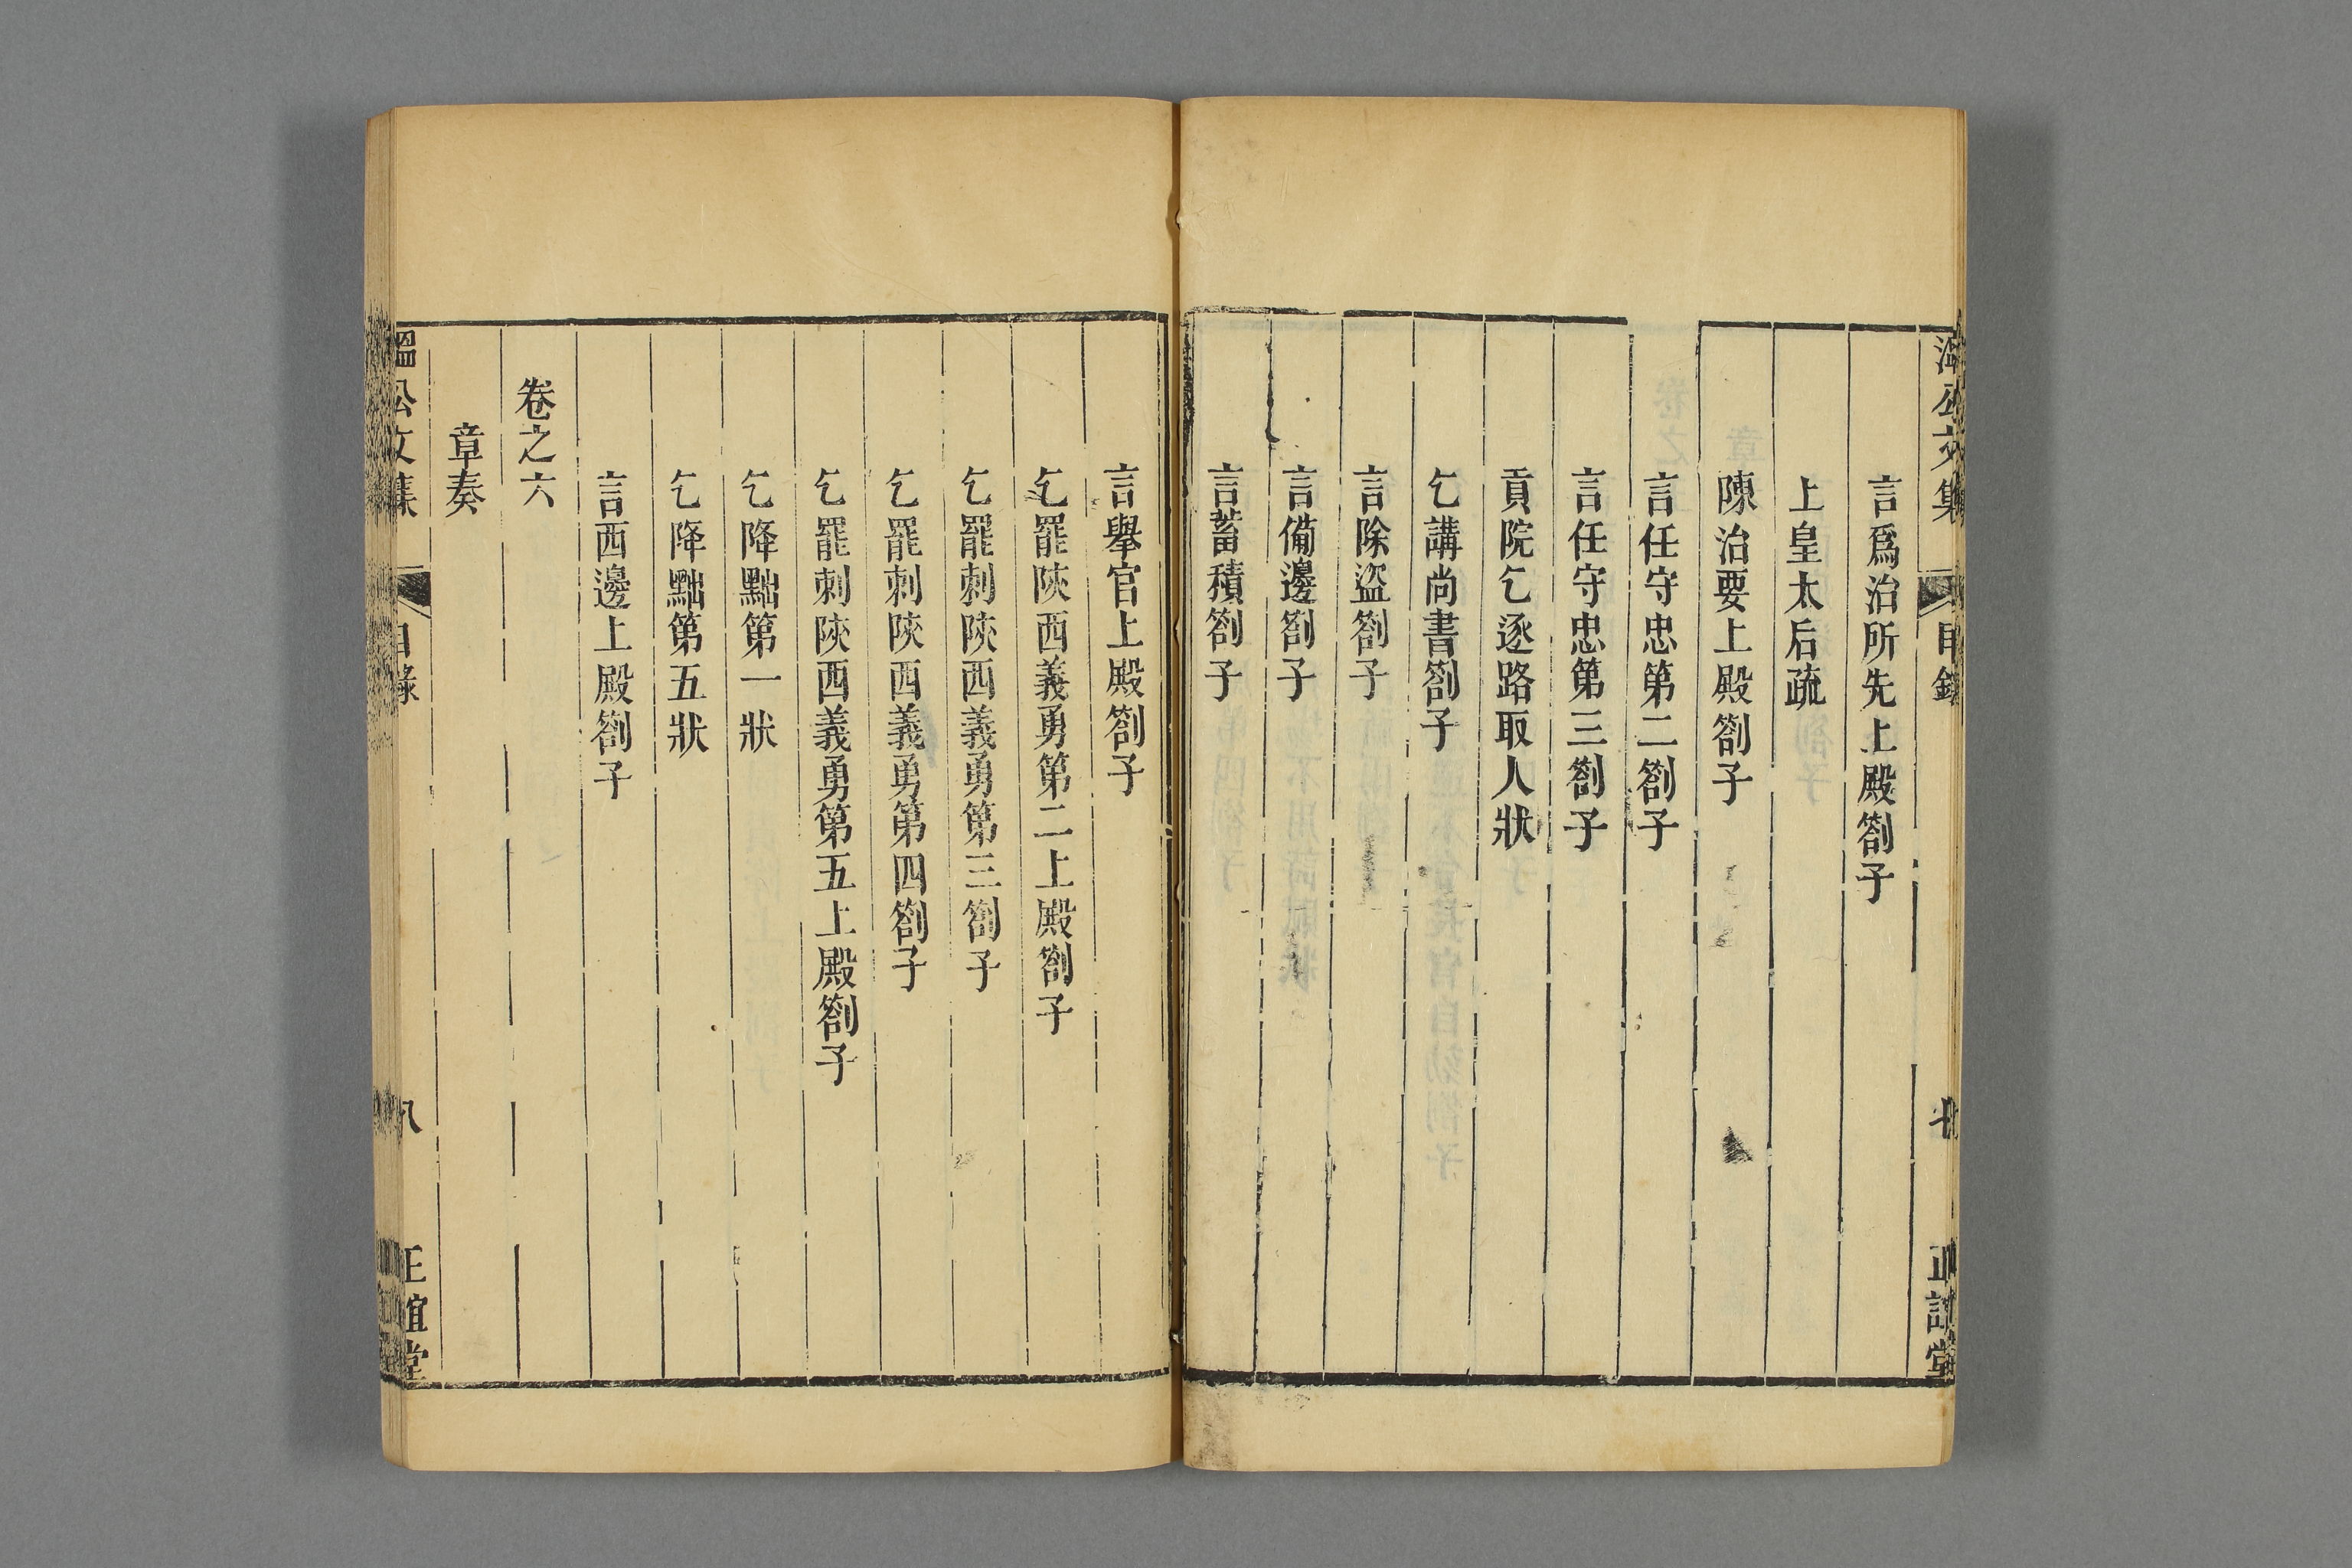 溫公文集 目錄 七 正誼堂
言爲治所先上殿劄子
上皇太后疏
陳治要上殿劄子
言任守忠第二劄子
言任守忠第三劄子
貢院乞逐路取人狀
乞講尚書劄子
言除盜劄子
言備邊劄子
言蓄積劄子
言舉官上殿劄子
乞罷陝西義勇第二上殿劄子
乞罷刺陝西義勇第三劄子
乞罷刺陝西義勇第四劄子
乞罷刺陝西義勇第五上殿劄子
乞降黜第一狀
乞降黜第五狀
言西邊上殿劄子
卷之六
章奏
溫公文集 目錄 八 正誼堂